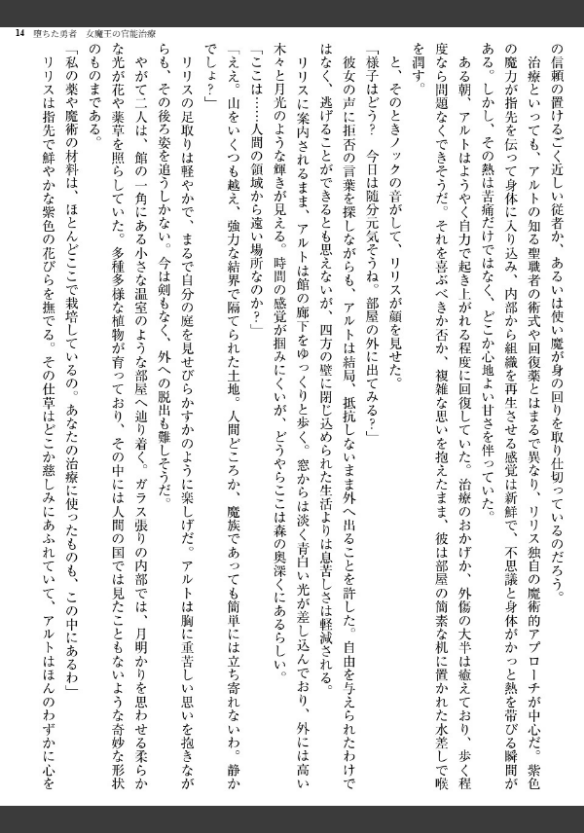 14 堕ちた勇者　女魔王の官能治療
の信頼の置けるごく近しい従者か、あるいは使い魔が身の回りを取り仕切っているのだろう。
　治療といっても、アルトの知る聖職者の術式や回復薬とはまるで異なり、リリス独自の魔術的アプローチが中心だ。紫色
の魔力が指先を伝って身体に入り込み、内部から組織を再生させる感覚は新鮮で、不思議と身体がかっと熱を帯びる瞬間が
ある。しかし、その熱は苦痛だけではなく、どこか心地よい甘さを伴っていた。
　ある朝、アルトはようやく自力で起き上がれる程度に回復していた。治療のおかげか、外傷の大半は癒えており、歩く程
度なら問題なくできそうだ。それを喜ぶべきか否か、複雑な思いを抱えたまま、彼は部屋の簡素な机に置かれた水差しで喉
を潤す。
　と、そのときノックの音がして、リリスが顔を見せた。
「様子はどう？　今日は随分元気そうね。部屋の外に出てみる？」
　彼女の声に拒否の言葉を探しながらも、アルトは結局、抵抗しないまま外へ出ることを許した。自由を与えられたわけで
はなく、逃げることができるとも思えないが、四方の壁に閉じ込められた生活よりは息苦しさは軽減される。
　リリスに案内されるまま、アルトは館の廊下をゆっくりと歩く。窓からは淡く青白い光が差し込んでおり、外には高い
木々と月光のような輝きが見える。時間の感覚が掴みにくいが、どうやらここは森の奥深くにあるらしい。
「ここは……人間の領域から遠い場所なのか？」
「ええ。山をいくつも越え、強力な結界で隔てられた土地。人間どころか、魔族であっても簡単には立ち寄れないわ。静か
でしょ？」
　リリスの足取りは軽やかで、まるで自分の庭を見せびらかすかのように楽しげだ。アルトは胸に重苦しい思いを抱きなが
らも、その後ろ姿を追うしかない。今は剣もなく、外への脱出も難しそうだ。
　やがて二人は、館の一角にある小さな温室のような部屋へ辿り着く。ガラス張りの内部では、月明かりを思わせる柔らか
な光が花や薬草を照らしていた。多種多様な植物が育っており、その中には人間の国では見たこともないような奇妙な形状
のものまである。
「私の薬や魔術の材料は、ほとんどここで栽培しているの。あなたの治療に使ったものも、この中にあるわ」
　リリスは指先で鮮やかな紫色の花びらを撫でる。その仕草はどこか慈しみにあふれていて、アルトはほんのわずかに心を